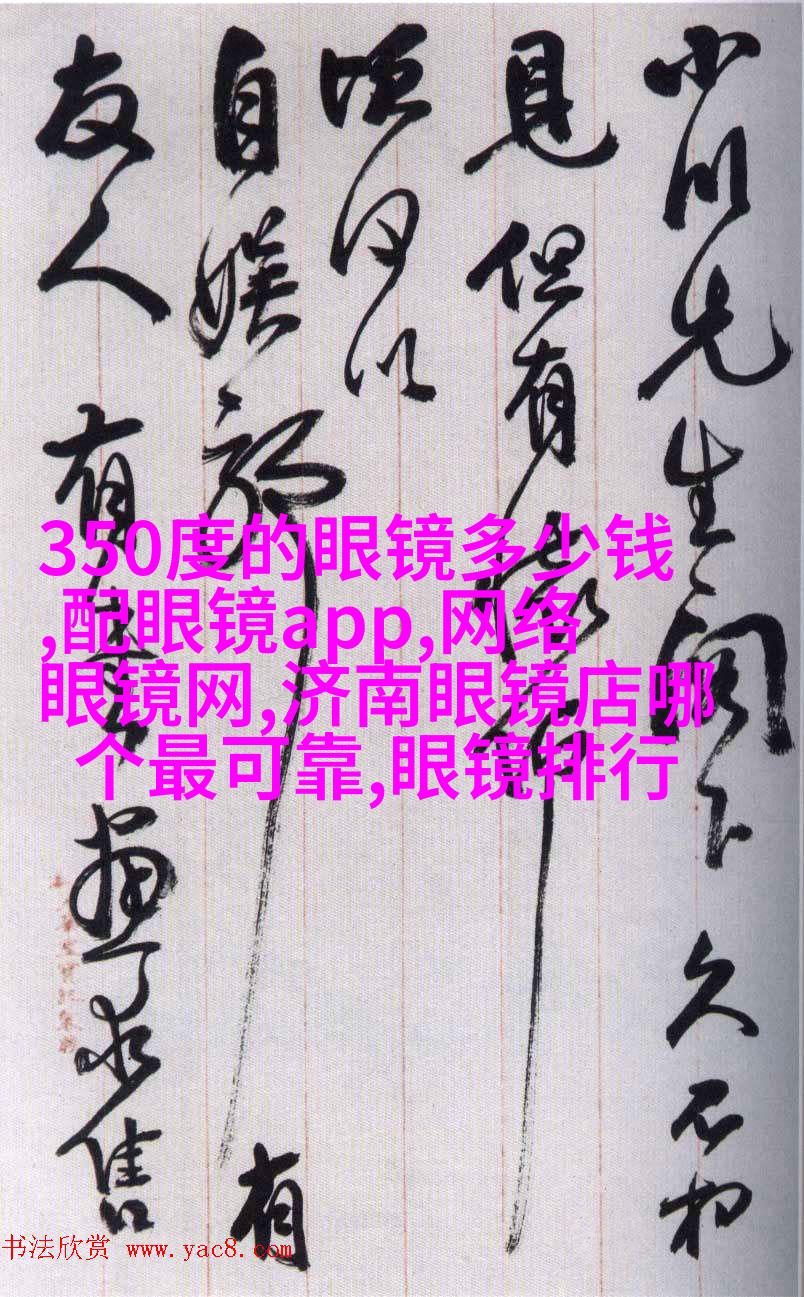 小川先生閣下 久不相
見 但有懷
何以
自娱 有
友人 有書畫求售
350度的眼镜多少钱
,配眼镜app,网络
眼镜网,济南眼镜店哪
个最可靠,眼镜排行
书法欣赏 www.yac8.com